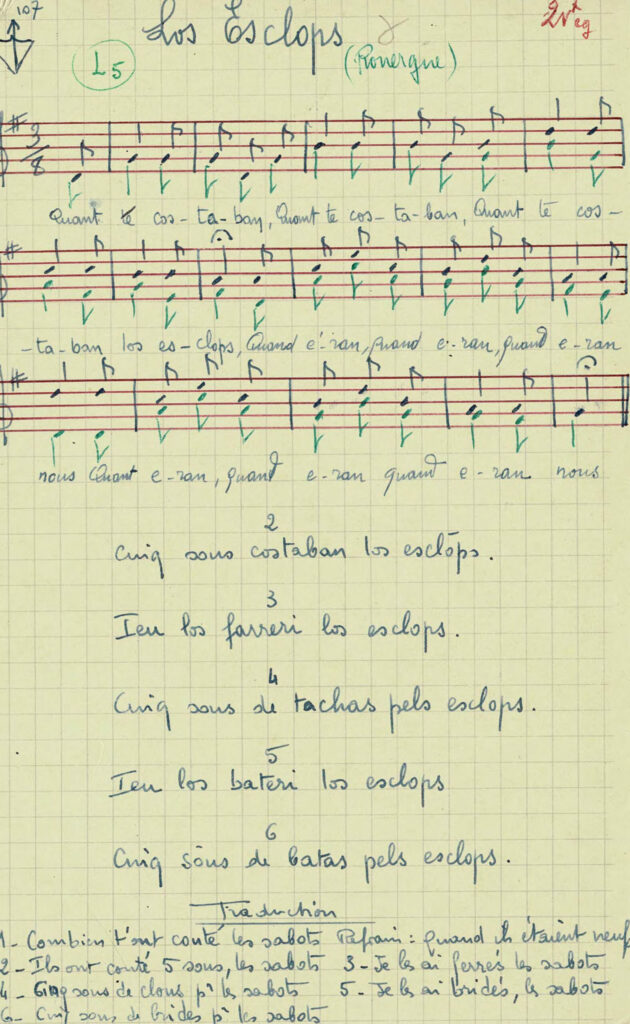 107
Los Esclops
(Rouergue)
L5
3
8
Quant te cos-ta-ban, Quant te cos-ta-ban, Quant te cos-
-ta-ban los es-clops, Quand e-ran, quand e-ran, quand e-ran
nous Quant e-ran, quand e-ran quand e-ran nous
2
Cinq sous costaban los esclops.
3
Ieu los farreri los esclops.
4
Cinq sous de tachas pels esclops.
5
Ieu los bateri los esclops
6
Cinq sous de batas pels esclops.
Traduction
1- Combien t'ont couté les sabots Refrain: quand ils étaient neufs
2- Ils ont couté 5 sous, les sabots 3- Je les ai ferrés les sabots
4- Cinq sous de clous pr les sabots 5- Je les ai bridés, les sabots
6- Cinq sous de brides pr les sabots